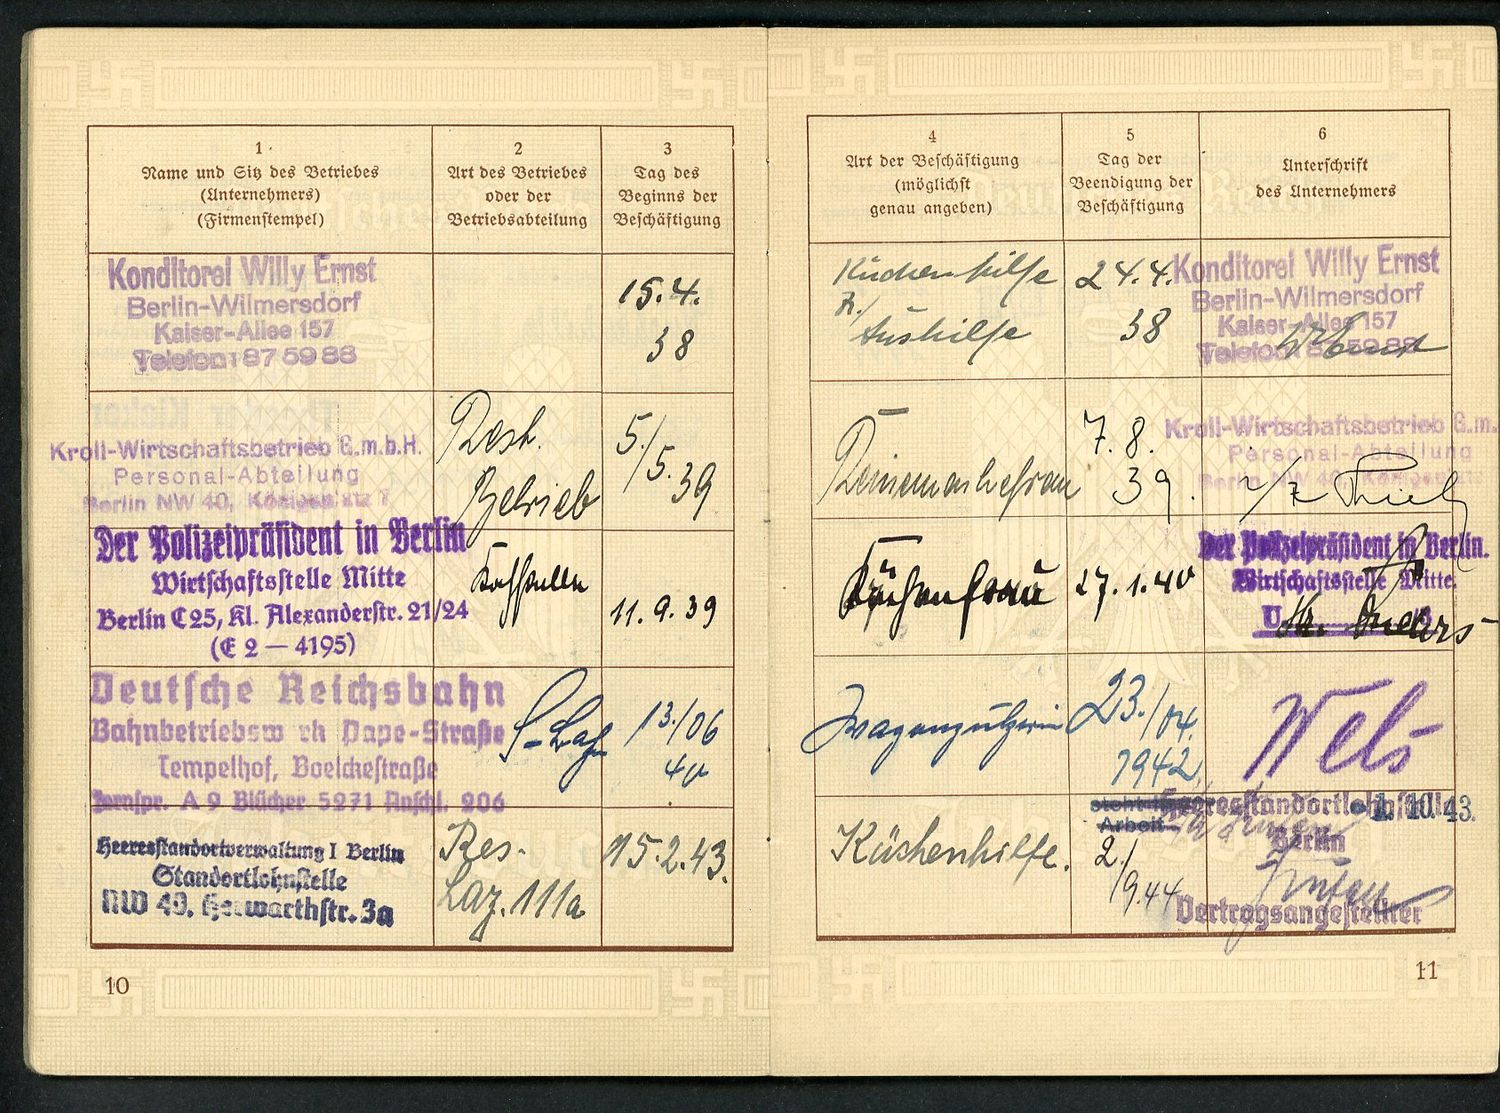 1
Name und Sitz des Betriebes
(Unternehmers)
(Firmenstempel)
2
Art des Betriebes
oder der
Betriebsabteilung
3
Tag des
Beginns der
Beschäftigung
Konditorei Willy Ernst
Berlin-Wilmersdorf
Kaiser-Allee 157
Telefon: 87 59 88
15.4.
38
Kroll-Wirtschaftsbetrieb G.m.b.H.
Personal-Abteilung
Berlin NW 40, Königsplatz 7
Rest.
Betrieb
5/5.39
Der Polizeipräsident in Berlin
Wirtschaftsstelle Mitte
Berlin C 25, Kl. Alexanderstr. 21/24
(E 2 — 4195)
11.9.39
Deutsche Reichsbahn
Bahnbetriebsw rh Pape-Straße
Tempelhof, Boelckestraße
Fernspr. A 9 Blücher 5271 Anschl. 206
13./06
40
Heeresstandortverwaltung I Berlin
Standortlohnstelle
NW 40, Herwarthstr. 3a
Res.-
Laz. 111a
15.2.43.
10
4
Art der Beschäftigung
(möglichst
genau angeben)
5
Tag der
Beendigung der
Beschäftigung
6
Unterschrift
des Unternehmers
Küchenhilfe
z./
Aushilfe
24.4.
38
Konditorei Willy Ernst
Berlin-Wilmersdorf
Kaiser-Allee 157
Telefon: 87 59 88
W Ernst
Reinemachefrau
7.8.
39.
Kroll-Wirtschaftsbetrieb G.m.
Personal-Abteilung
Berlin NW 40, Königsplatz
Küchenfrau
27.1.40
Der Polizeipräsident in Berlin.
Wirtschaftsstelle Mitte.
23./04.
1942.
Wels
Küchenhilfe.
2./
9.44
Arbeit
Heeresstandortlohnstelle
1. 10. 43.
Berlin
Vertragsangestellter
11